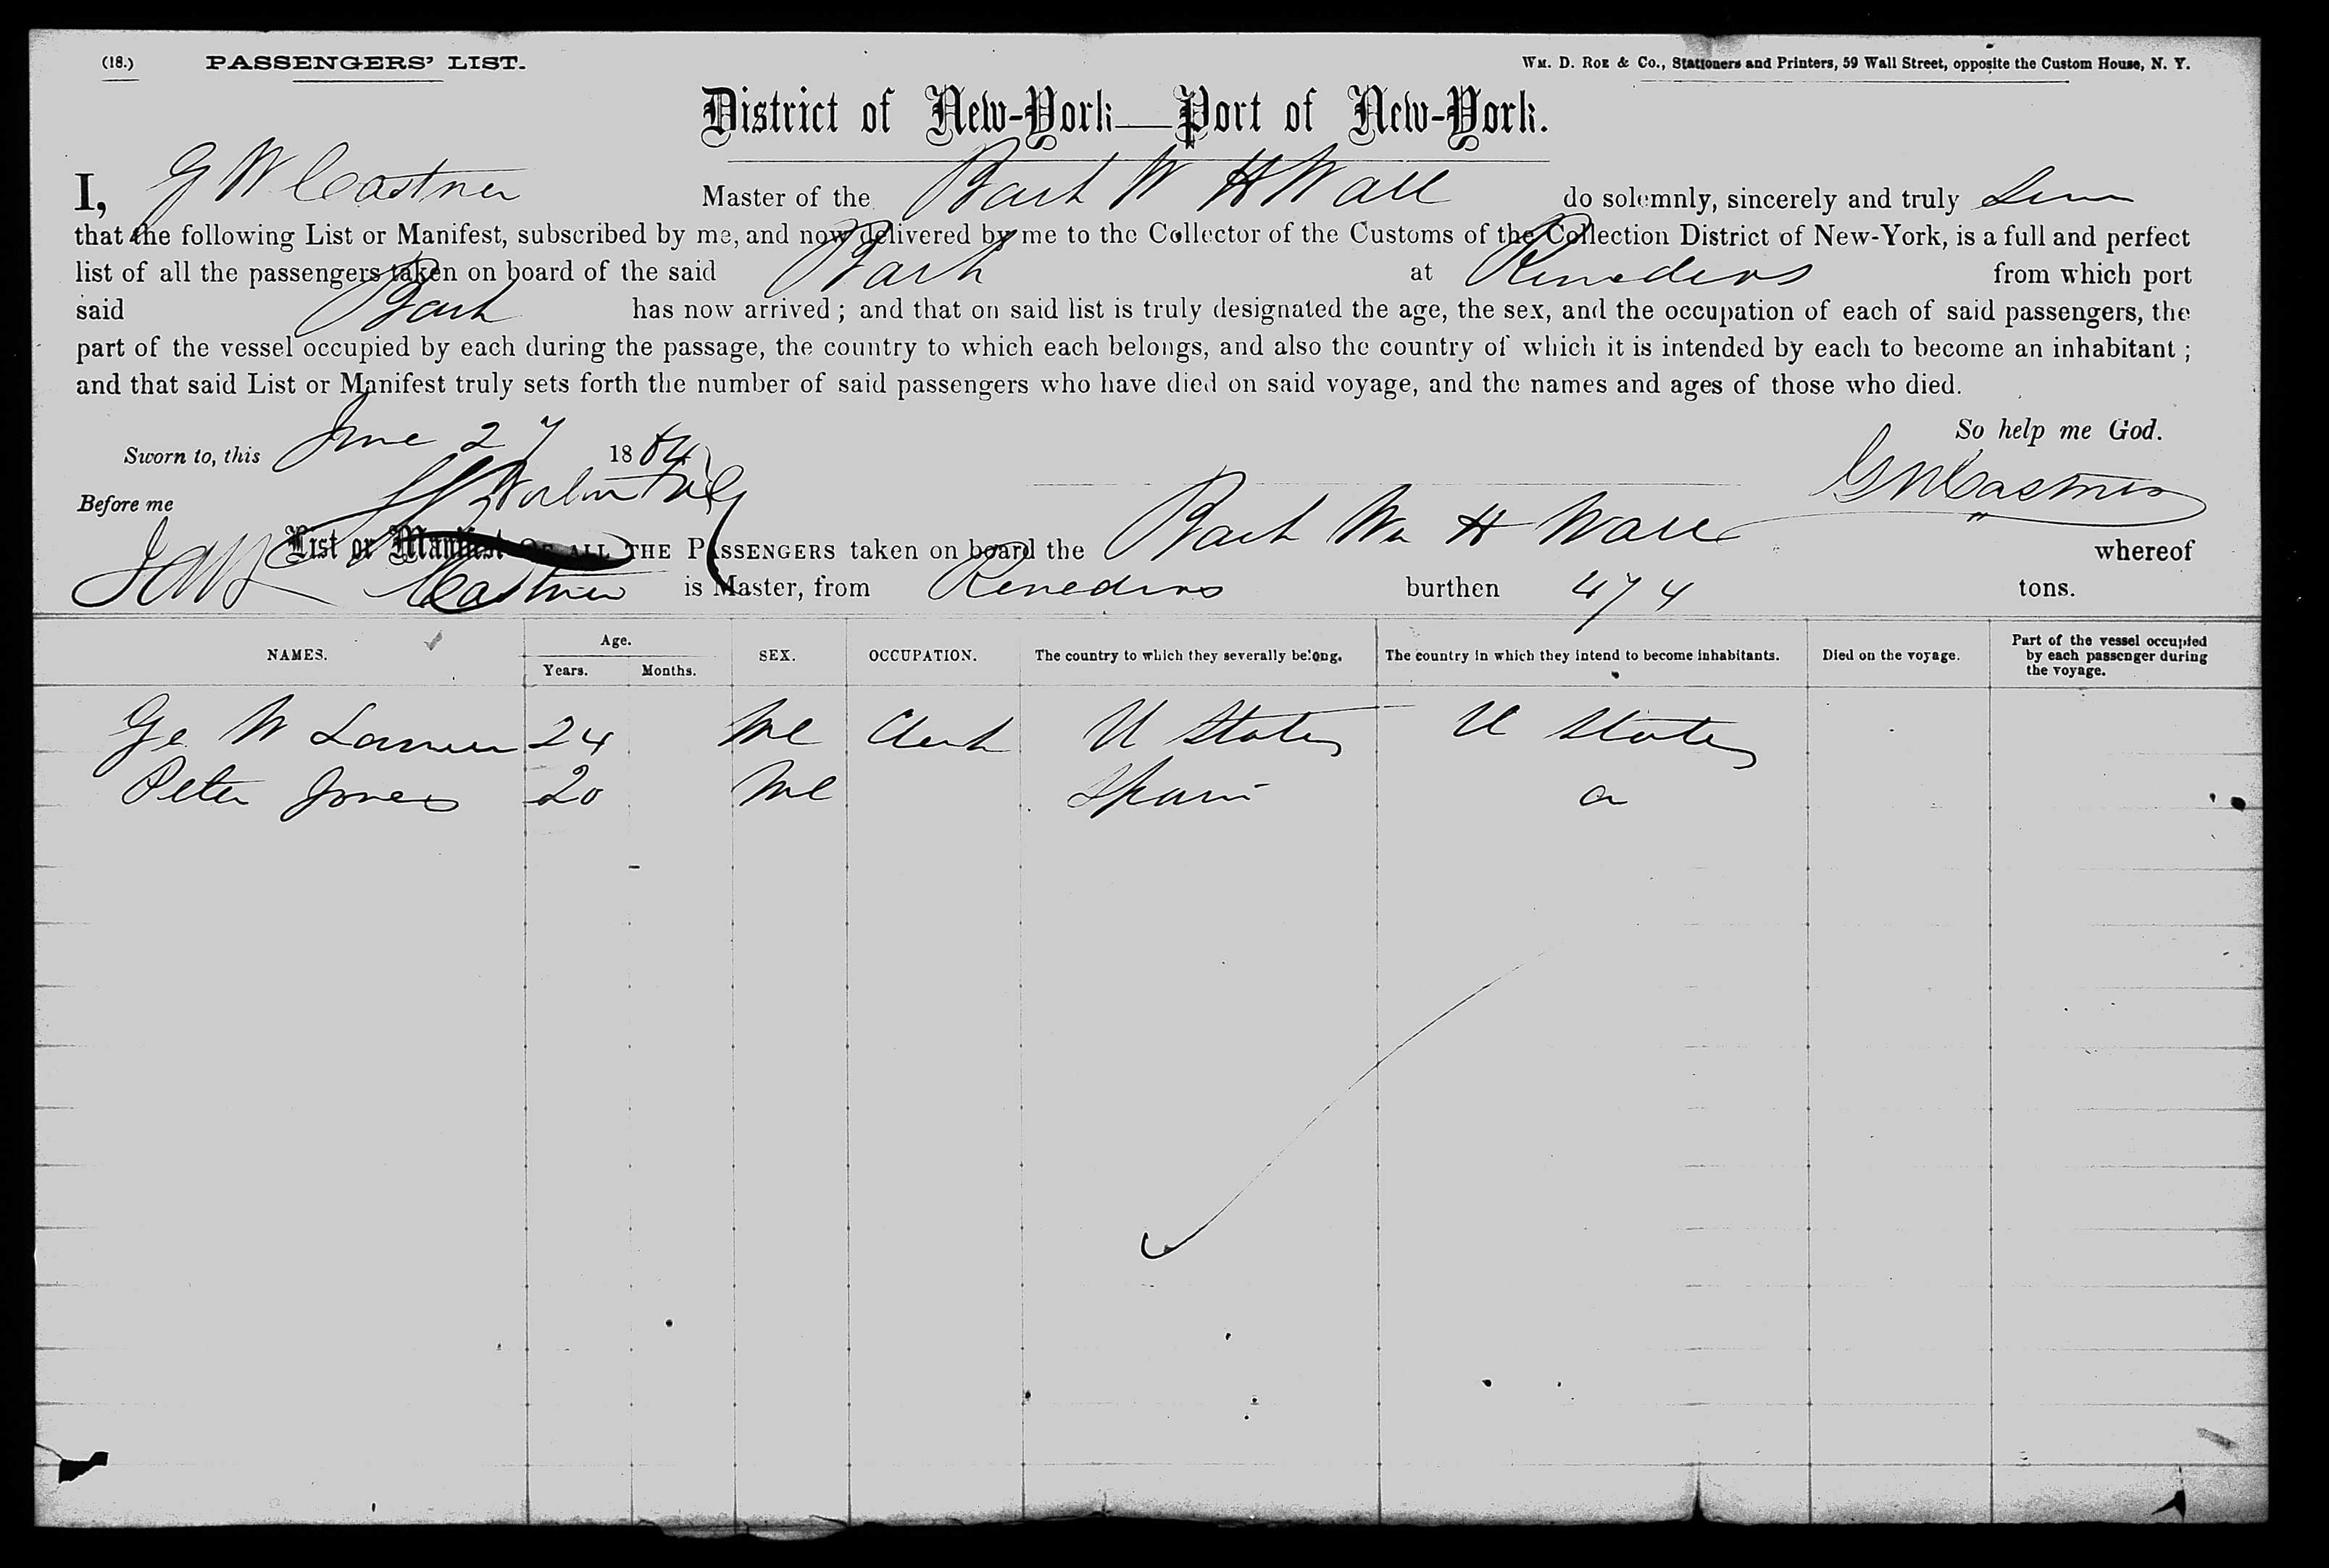 (18.) PASSENGERS' LIST. Wm. D. Roe & Co., Stationers and Printers, 59 Wall Street, opposite the Custom House, N. Y.
District of New-York—Port of New-York.
I, G W Castner Master of the Bark W H Wall do solemnly, sincerely and truly
that the following List or Manifest, subscribed by me, and now delivered by me to the Collector of the Customs of the Collection District of New-York, is a full and perfect
list of all the passengers taken on board of the said Bark at Remedios from which port
said Bark has now arrived; and that on said list is truly designated the age, the sex, and the occupation of each of said passengers, the
part of the vessel occupied by each during the passage, the country to which each belongs, and also the country of which it is intended by each to become an inhabitant;
and that said List or Manifest truly sets forth the number of said passengers who have died on said voyage, and the names and ages of those who died.
So help me God.
Sworn to, this June 27 1884
G W Castner
Before me
List or Manifest OF ALL THE PASSENGERS taken on board the Bark Wm H Wall whereof
Castner is Master, from Remedios burthen 474 tons.
NAMES. Age. Years. Months. SEX. OCCUPATION. The country to which they severally belong. The country in which they intend to become inhabitants. Died on the voyage. Part of the vessel occupied by each passenger during the voyage.
Ge W 24 Ml Clerk U States U States
Peter Jones 20 Ml Spain